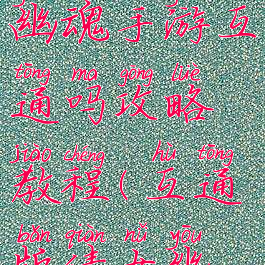 幽魂手游互
tōng ma gōng lüè
通吗攻略
jiào chéng hù tōng
教程(互通
bǎn qiàn nǚ yōu
版倩女幽